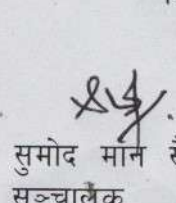 सुमोद मान
सञ्चालक